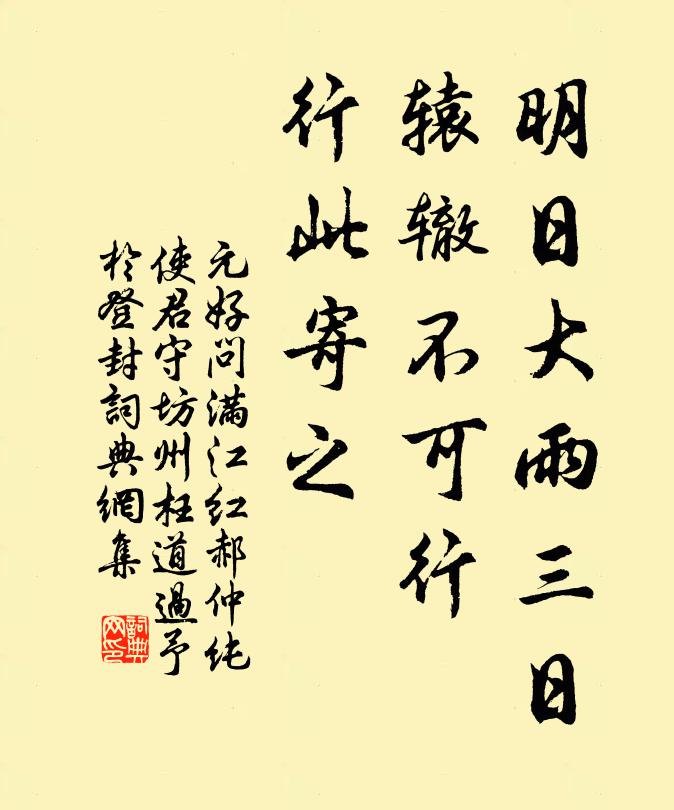 明日大雨三日
辕辙不可行
行此寄之
元好问满江红郝仲纯
使君守坊州枉道過予
於登封詞典網集
詞典网印